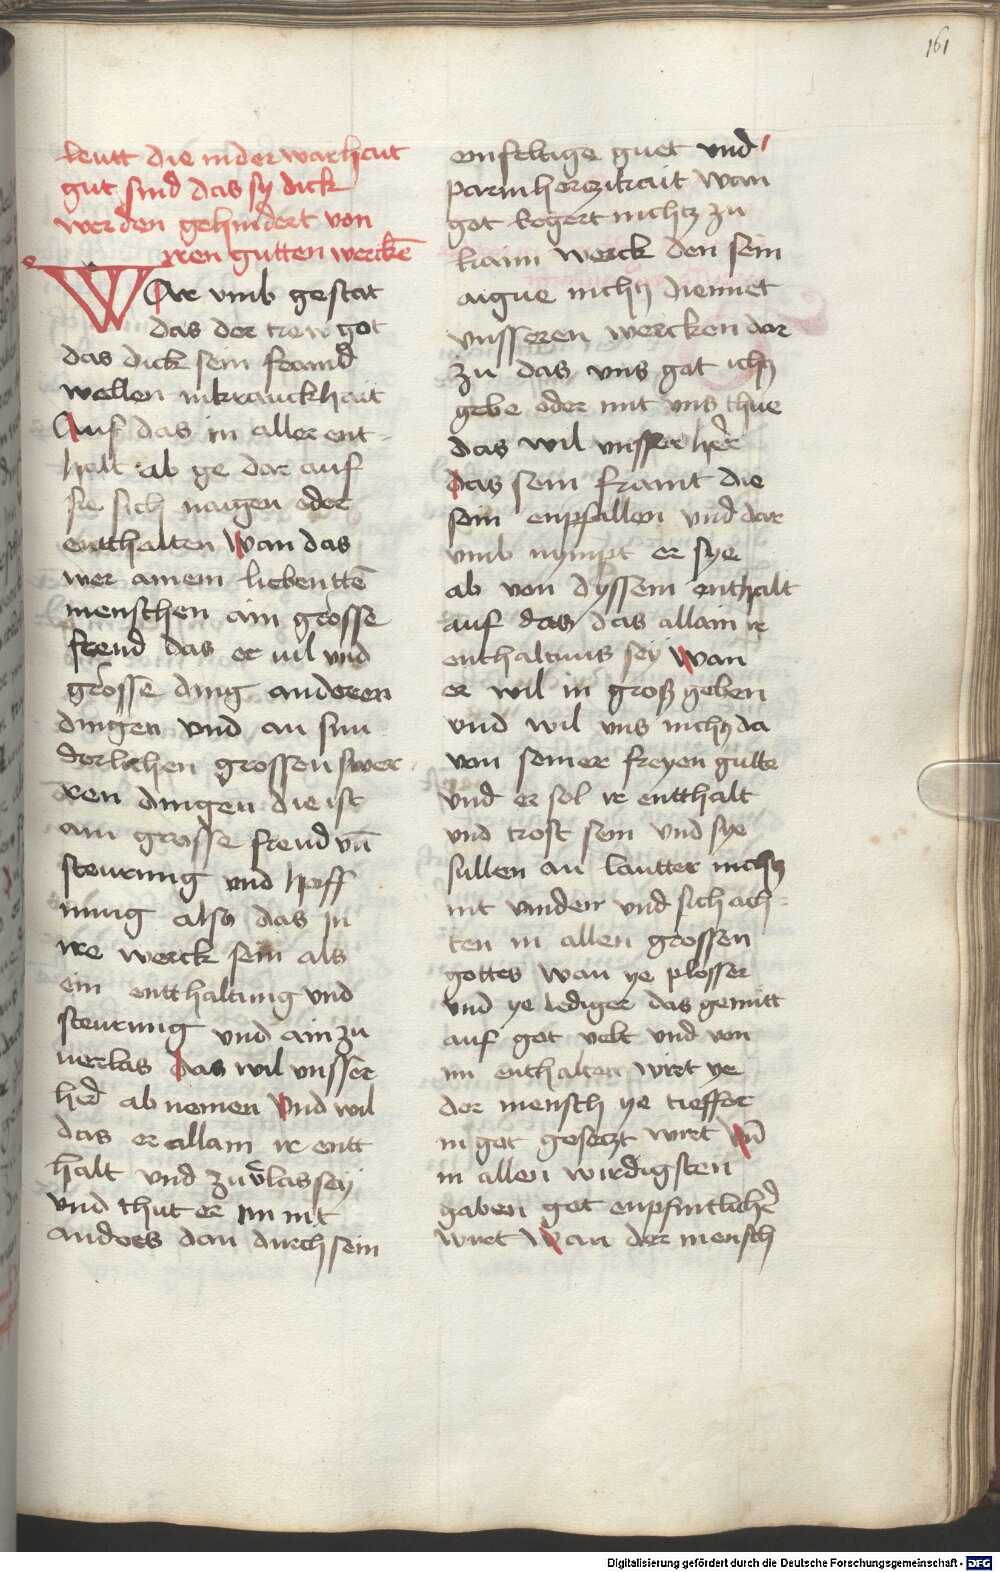 161
leutt die in der warhait
gut sind das sy dick
werden gehindert von
iren gutten werckē
WAr vmb gestat
das der trew got
das dick sein frannd
wellen in kranckhait
Auf das in aller ent-
halt ab ge dar auf
sie sich naigen oder
entthalten Wan das
wer ainem liebenttē
menschen ain grosse
frend das er uil vnd
grosse ding anderen
dingen vnd an sun
derlichen grossen swer
ren dingen die ist
ain grosse freud vn̄
steurung vnd hoff
nung also das in
ire werck sein als
ein entthaltung vnd
steurung vnd ain zu
uerlas Das wil vnsser
her̄ ab nemen Vnd wil
das er allain ir entt
halt vnd zuv̄las sey
vnd thut er im nit
anders dan durch sein
einfeltige guet vnd
parmherczikait wan
got begert nichtz zu
kaim werck den sein
aigne nichtz diennet
vnsseren wercken dar
zu das vns got ichtz
gebe oder mit vns thue
das wil vnsser her̄
Das sein frannt die
sein enpfallen vnd dar
vmb nympt er sye
ab von dyssem enthalt
auf das das allain ir
enthaltnus sey Wan
er wil in groß geben
vnd wil vns nichtz da
von seiner freyen gutte
vnd er sol ir entthalt
vnd trost sein vnd sye
sullen an lautter nichtz
nit vinden vnd sich ach-
ten in allen grossen
gottes wan ye plosser
vnd ye lediger das gemitt
auf got velt vnd von
im enthalten wirt ye
der mensch ye tieffer
in got gesetzt wirt Vn̄
in allen wirdigsten
gaben got enpfintlicher̄
wirt Wan der mensch
Digitalisierung gefördert durch die Deutsche Forschungsgemeinschaft - DFG